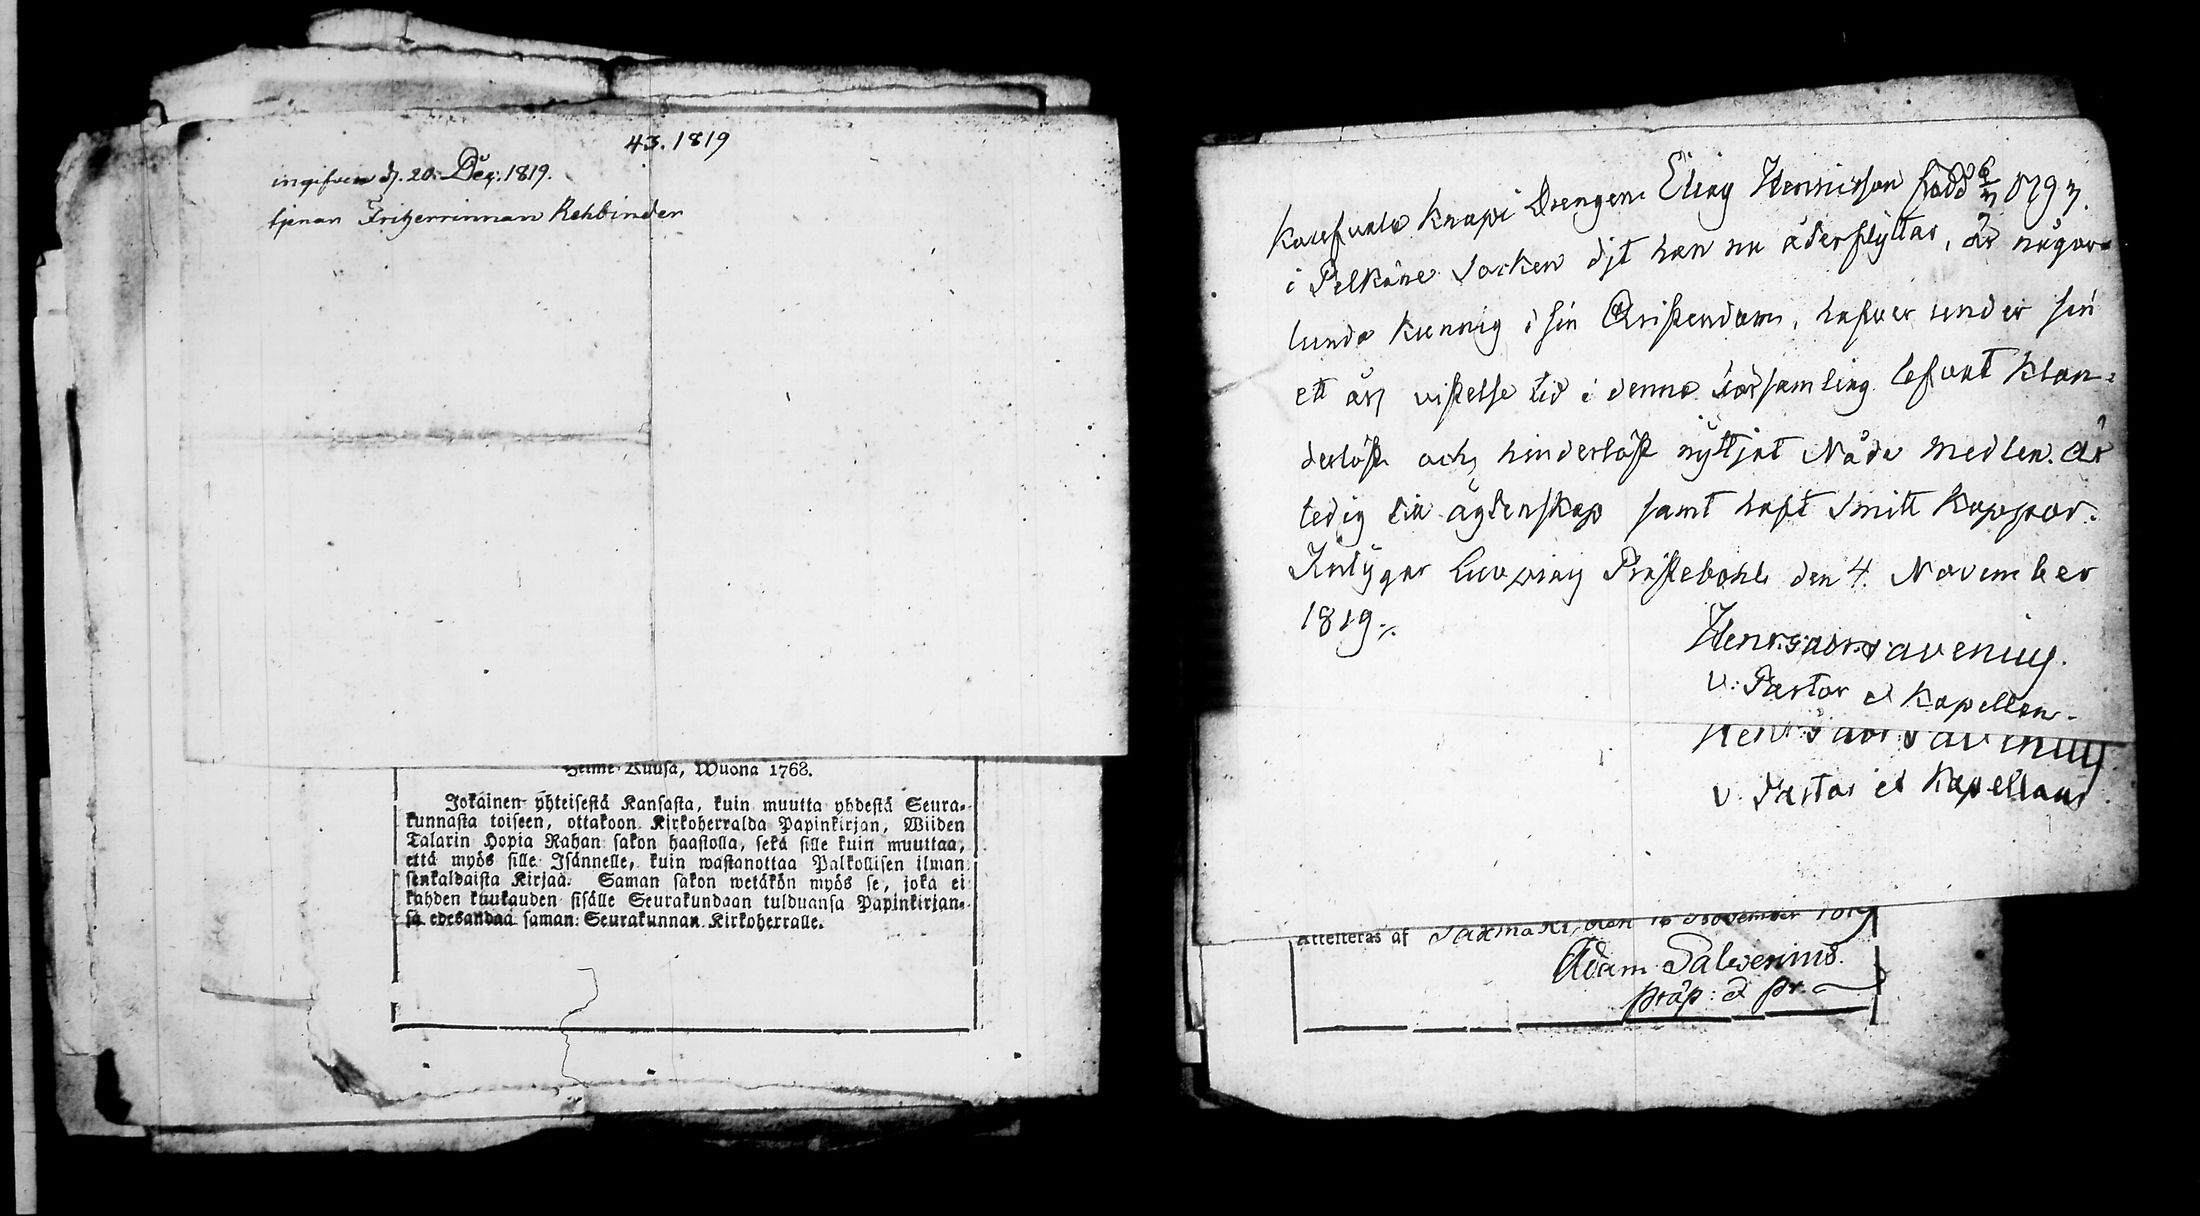 43. 1819
ingifven d. 20. Dec. 1819.
tjenar Friherrinnan Rehbinder
Heime-Kuusa, Wuona 1768.
Jokainen yhteisestä Kansasta, kuin muutta yhdestä Seura-
kunnasta toiseen, ottakoon Kirkoherralda Papinkirjan, Wiiden
Talarin Hopia Rahan sakon haastolla, sekä sille kuin muuttaa,
että myös sille Isännelle, kuin wastanottaa Palkollisen ilman
senkaldaista Kirjaa. Saman sakon wetäkön myös se, joka ei
kahden kuukauden sisälle Seurakundaan tulduansa Papinkirjan-
sa edesandaa saman Seurakunnan Kirkoherralle.
Knapi Drengen Elias Henricsson född 6/7 1797.
i Pelkäne Socken dit han nu återflyttar, är någor-
lunda kunnig i sin Christendom, hafver under sin
ett års vistelse tid i denna Församling lefvat klan-
derlöst och hinderlöst nyttjat Nåde medlen. Är
ledig till ägtenskap samt haft Smitt Koppor.
Intygar Luopiois Prästebohl den 4. November
1819.
Henr. Gabr. Favenius.
v. Pastor et Kapellan.
Henr. Gabr. Favenius
v. Pastor et Kapellan
Attesteras af Saxmäki, den 16 November 1819
Adam Salvenius.
præp: & pr.